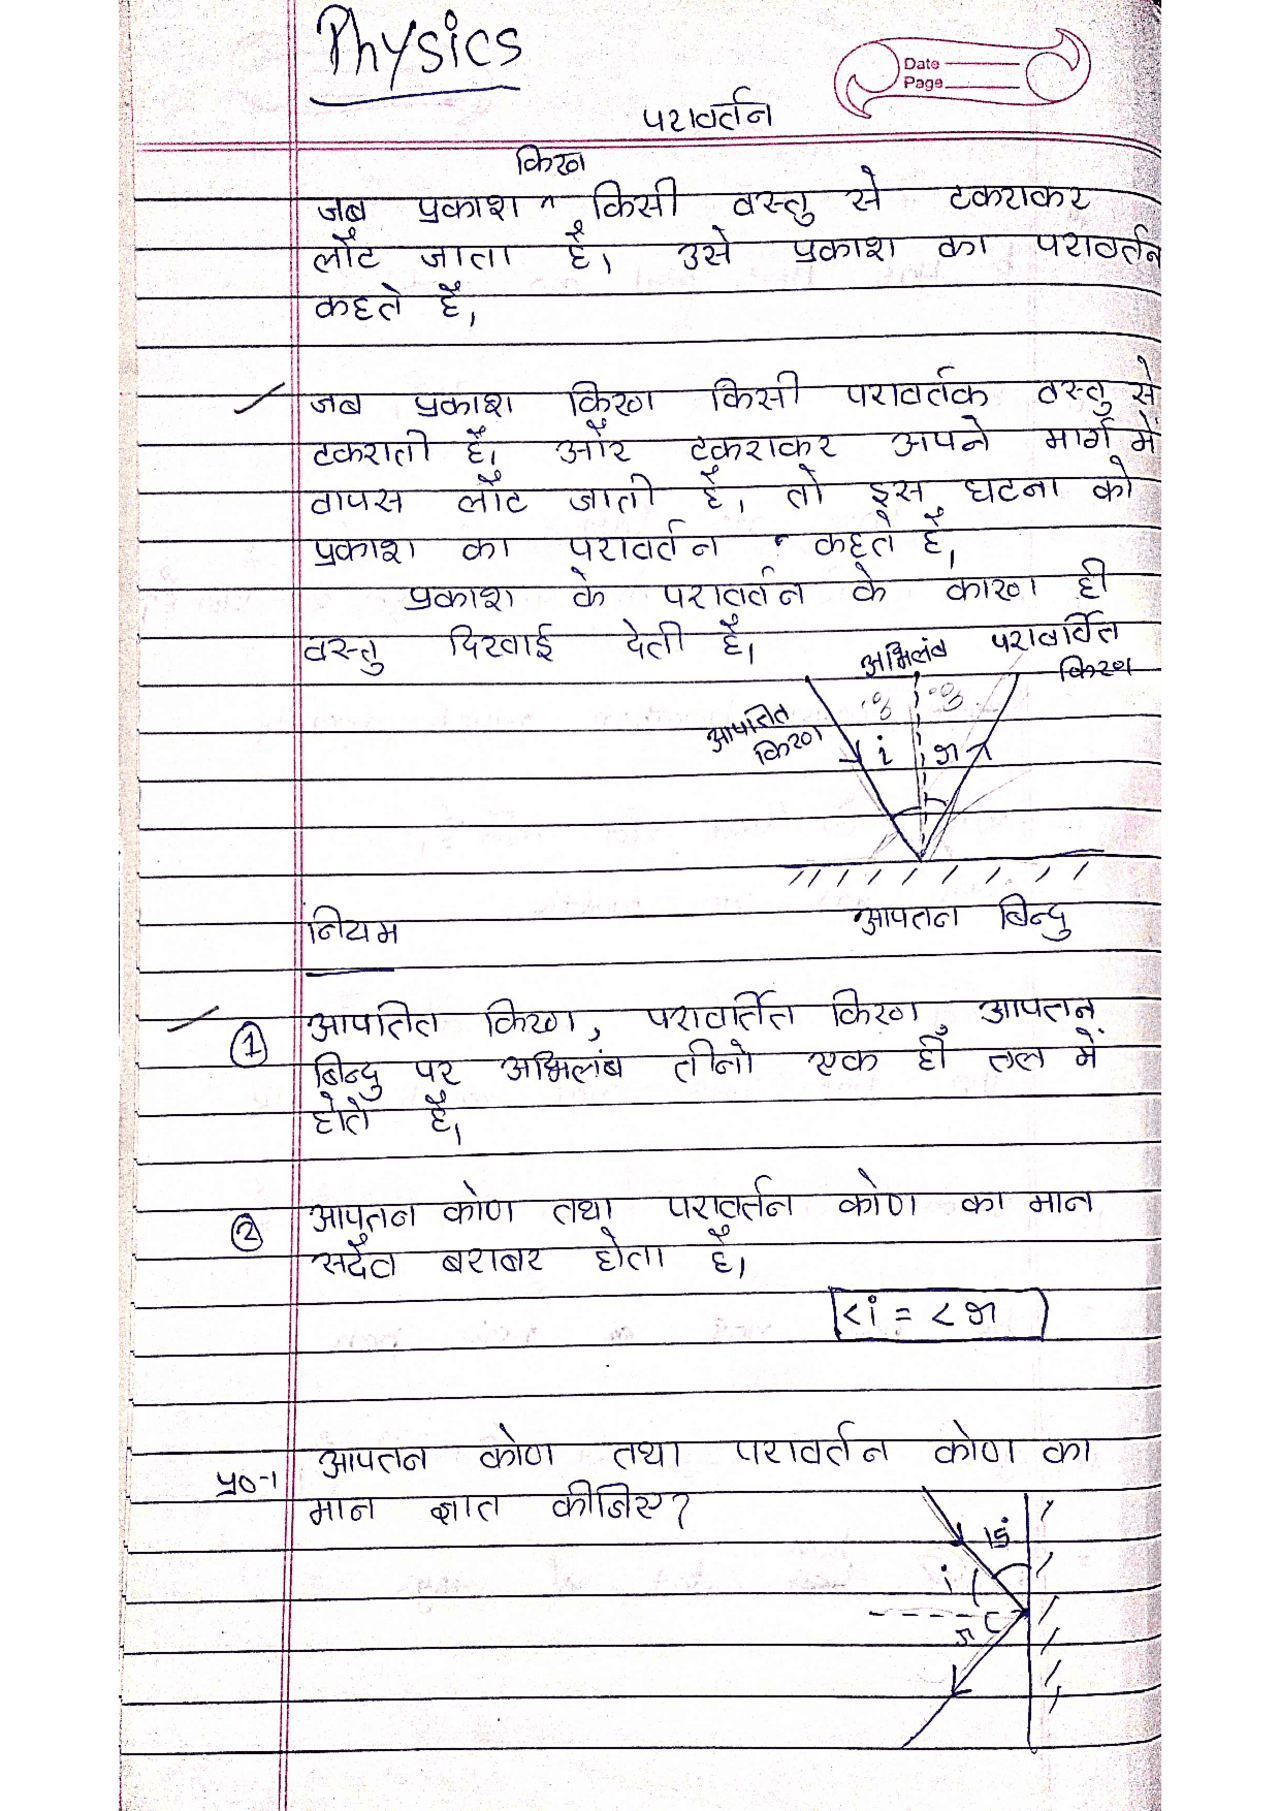 Physics
Date
Page
परावर्तन
किरण
जब प्रकाश ^ किसी वस्तु से टकराकर
लौट जाता है। उसे प्रकाश का परावर्तन
कहते हैं,
जब प्रकाश किरण किसी परावर्तक वस्तु से
टकराती है। और टकराकर अपने मार्ग में
वापस लौट जाती है, तो इस घटना को
प्रकाश का परावर्तन कहते हैं,
प्रकाश के परावर्तन के कारण ही
वस्तु दिखाई देती है।
अभिलंब परावर्वित
किरण
आपतित
किरण
i r
आपतन बिन्दु
नियम
① आपतित किरण, परावर्तित किरण, आपतन
बिन्दु पर अभिलंब तीनो एक ही तल में
होते है,
② आपतन कोण तथा परावर्तन कोण का मान
सदैव बराबर होता है,
<i = <r
प्र०-1 आपतन कोण तथा परावर्तन कोण का
मान ज्ञात कीजिए?
i
r